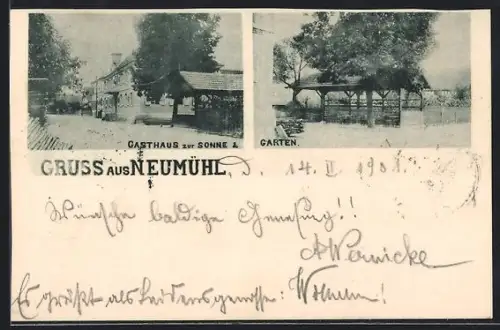 GASTHAUS ZUR SONNE & GARTEN.
GRUSS AUS NEUMÜHL, d. 14. II 1901.
Wünsche baldige Genesung!!
A Wernicke
Es grüßt als Leidensgenosse: